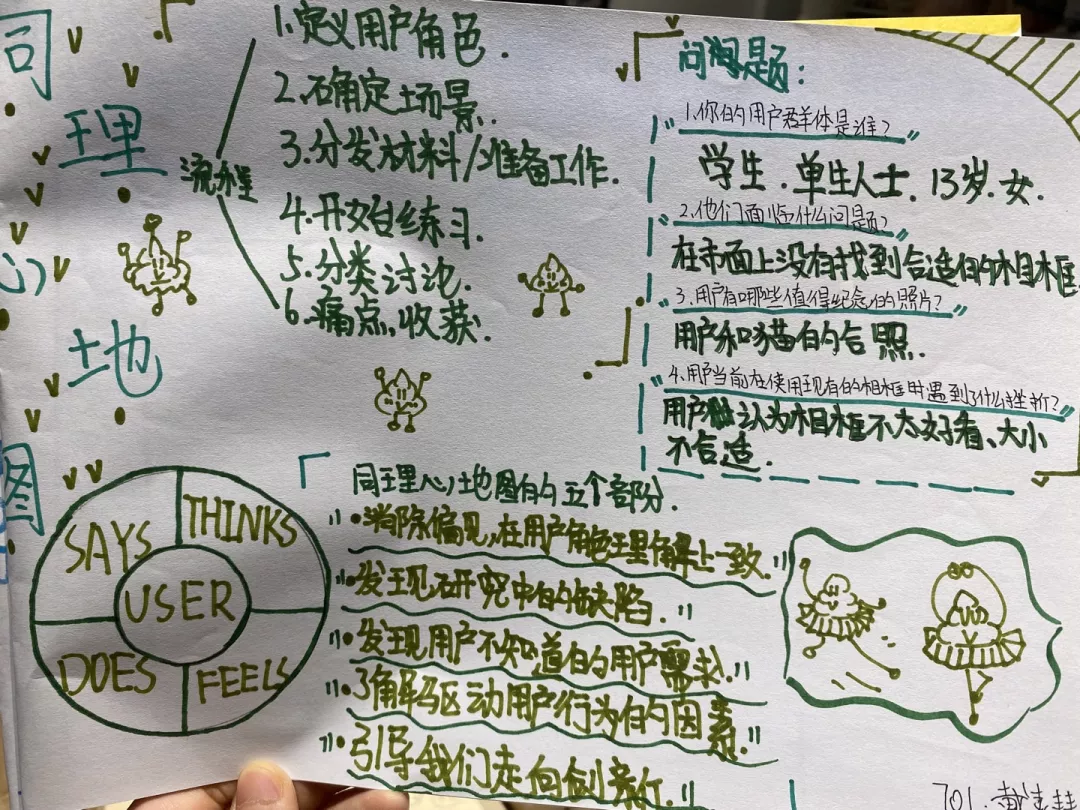 同
理
心
地
图
流程
1.定义用户角色.
2.确定场景.
3.分发材料/准备工作.
4.开始练习.
5.分类讨论.
6.痛点,收获.
问题:
"1.你的用户群体是谁?"
学生.单生人士.13岁.女.
"2.他们面临什么问题?"
在市面上没有找到合适的相框
"3.用户有哪些值得纪念的照片?"
用户和猫的合照.
"4.用户当前在使用现有的相框时遇到了什么挫折?"
用户认为相框不太好看、大小
不合适.
SAYS
THINKS
USER
DOES
FEELS
同理心地图的五个部分.
"•消除偏见,在用户角色理解上一致."
"•发现研究中的缺陷."
"•发现用户不知道的用户需求."
"•了解驱动用户行为的因素."
"•引导我们走向创新."
701